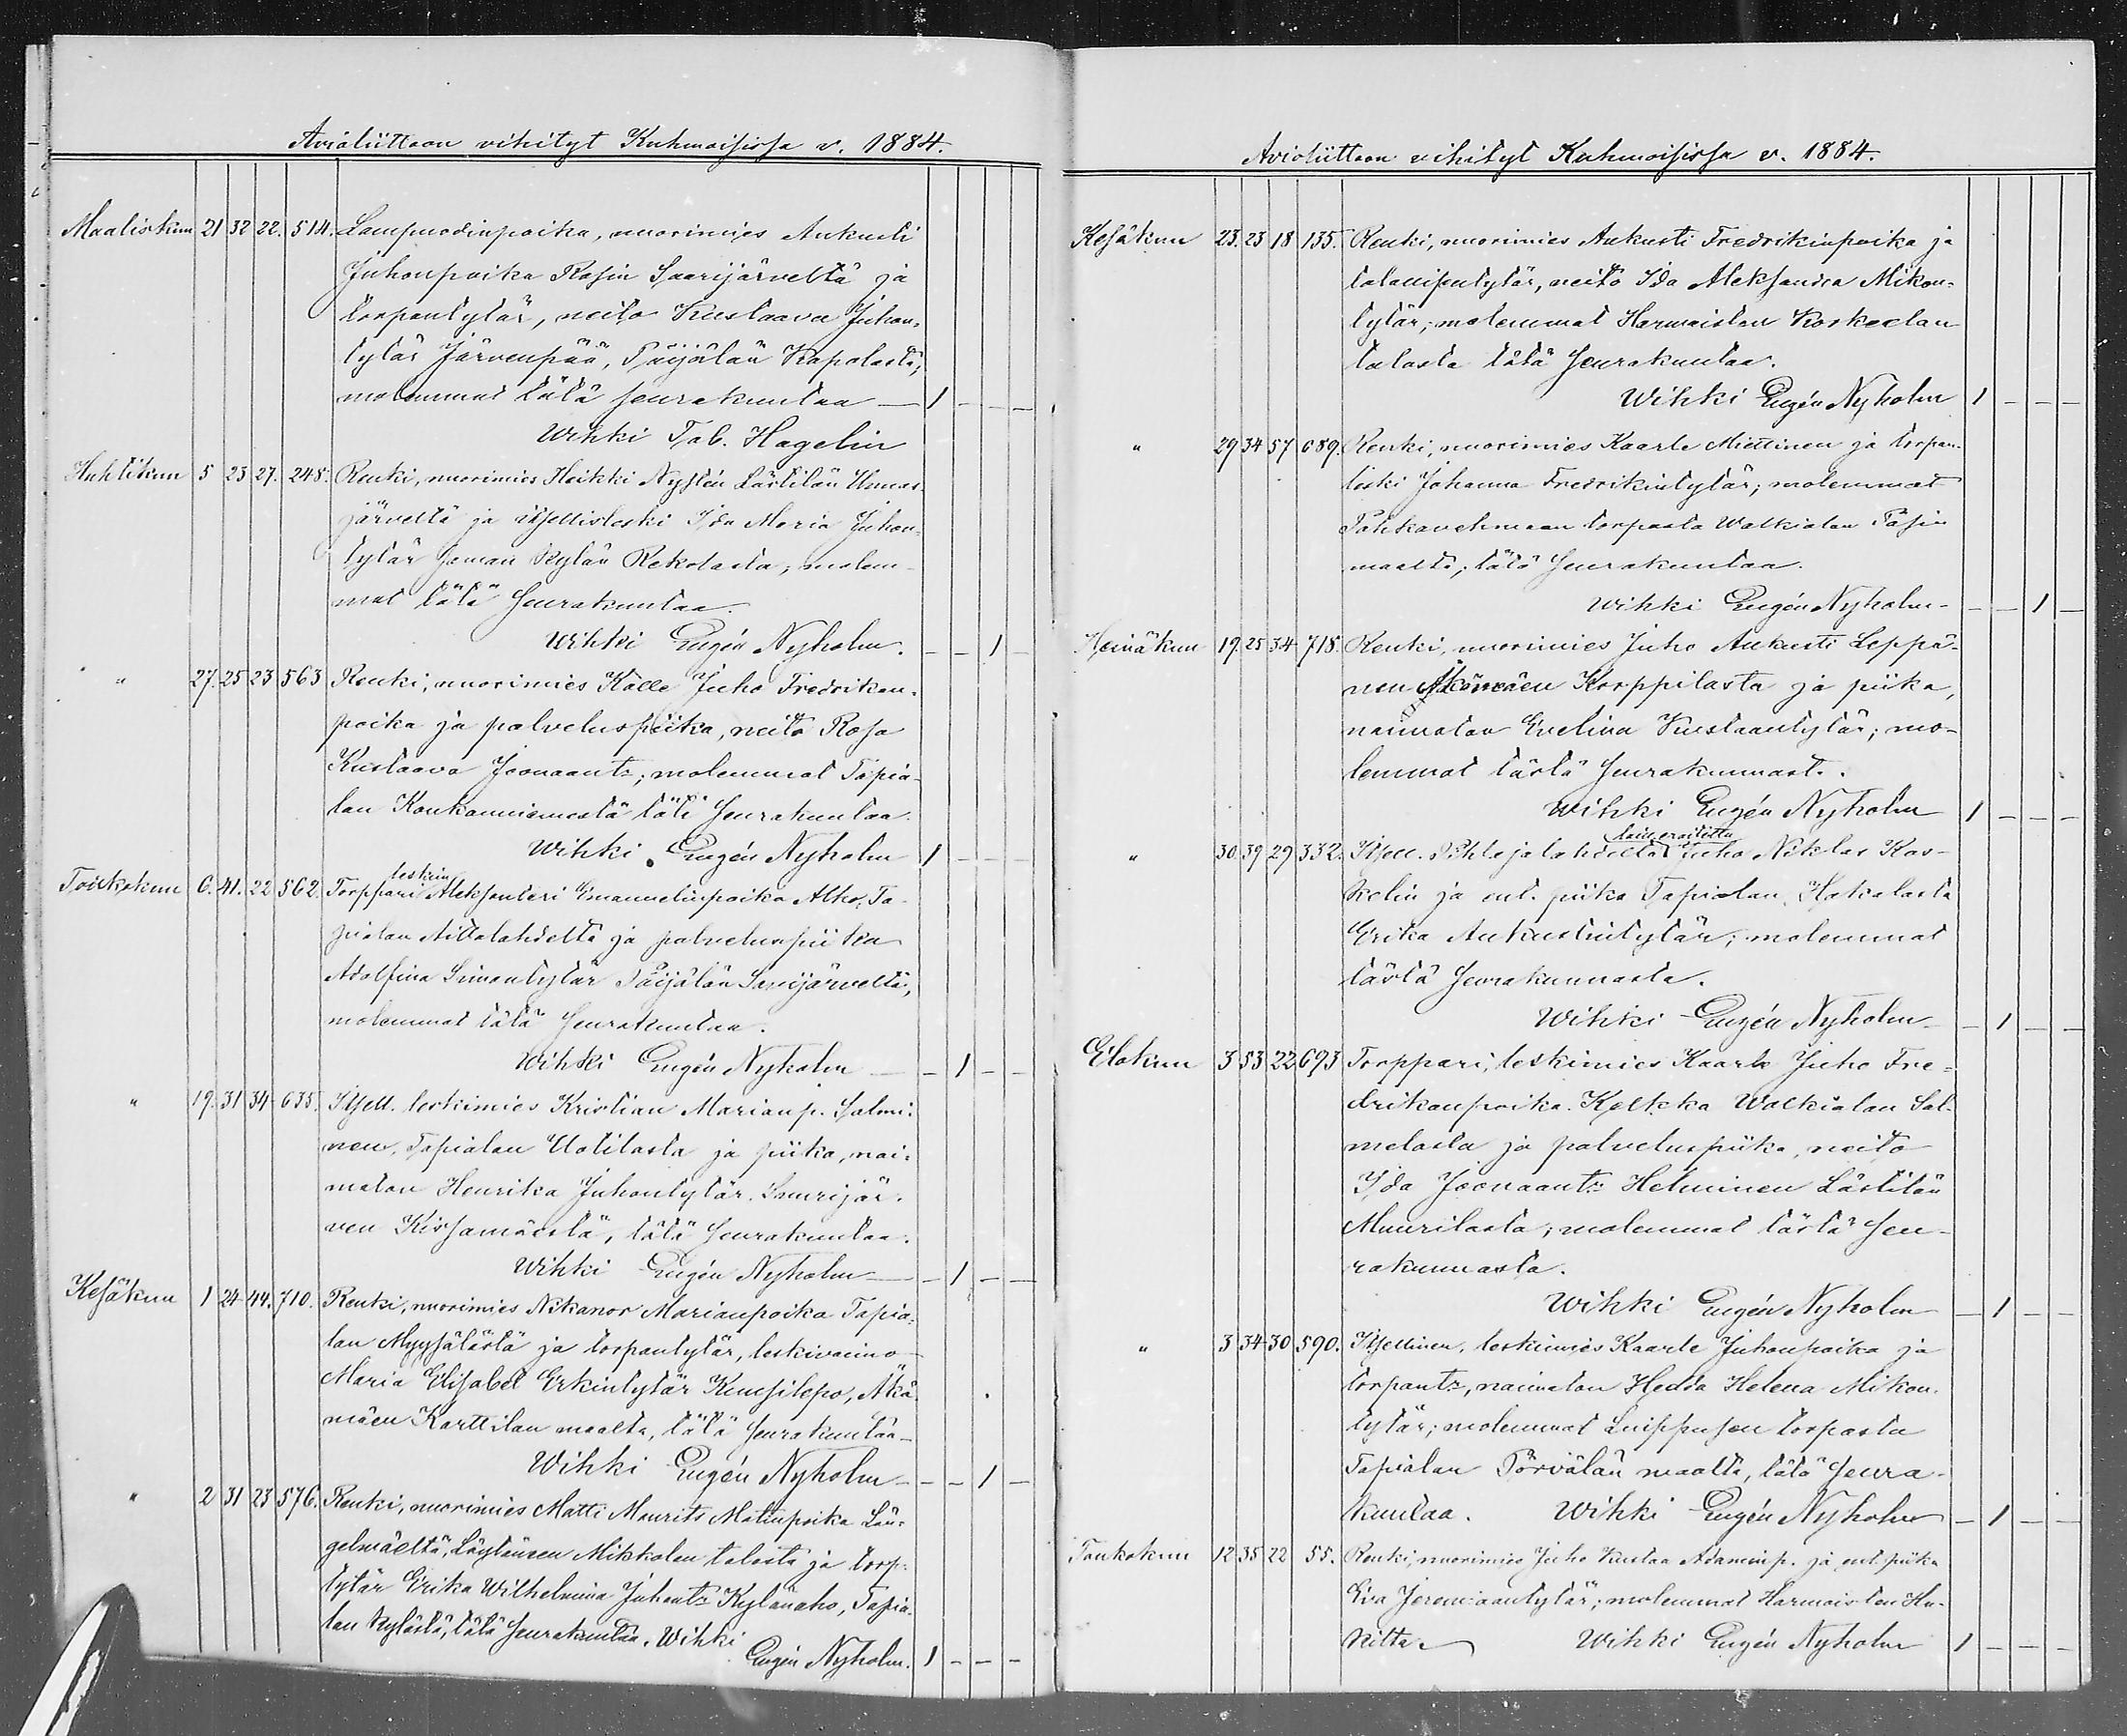 Avioliittoon vihityt Kuhmoisissa v. 1884.
Maaliskuu 21 32 22. 514. Lampuodinpoika, nuorimies Aukusti
Juhonpoika Rasin Saarijärveltä ja
torpantytär, neito Kustaava Juhon-
tytär Järvenpää, Päijälän Kapalasta;
molemmat tätä seurakuntaa — 1 - - -
Wihki Tab. Hagelin
Huhtikuu 5 23 27. 248. Renki, nuorimies Heikki Nystén Lästilän
järveltä ja itsellisleski Ida Maria Juhon-
tytär saman kylän Rekolasta; molem-
mat tätä seurakuntaa.
Wihki Eugén Nyholm. - - 1 -
" 27. 25 23 563 Renki, nuorimies Kalle Juho Fredrikin-
poika ja palveluspiika, neito Rosa
Kustaava Joonaantr; molemmat Tapia-
lan Koukanniemestä tätä seurakuntaa.
Wihki Eugén Nyholm 1 - - -
leskim
Toukokuu 6. 41. 22 562. Torppari Aleksanteri Emanuelinpoika Alho, Ta-
pialan Aittolahdelta ja palveluspiika
Adolfina Simontytär Päijälän Sarvijärveltä,
molemmat tätä seurakuntaa.
Wihki Eugén Nyholm — - 1 - -
" 19. 31 34 635. Itsell. leskimies Kristian Marianp. Salmi-
nen, Tapialan Uotilasta ja piika, nai-
maton Henrika Juhontytär Saarijär-
ven Kissamäestä, tätä seurakuntaa.
Wihki Eugén Nyholm — - 1 - -
Kesäkuu 1 24 44. 710. Renki, nuorimies Nikanor Marianpoika Tapia-
lan Myysälästä ja torpantytär, leskivaimo
Maria Elisabet Erkintytär Kuusilepo, Äkä-
mäen Karttilan maalta, tätä seurakuntaa -
Wihki Eugén Nyholm - - - 1 -
" 2 31 23 576. Renki, nuorimies Matti Maurits Matinpoika Län-
gelmäeltä, Löytänen Mikkolan talosta ja torp.
tytär Erika Wilhelmina Juhontr Kylänaho, Tapia-
lan kylästä, tätä seurakuntaa. Wihki
Eugén Nyholm. 1 - - -
Avioliittoon vihityt Kuhmoisissa v. 1884.
Kesäkuu 23. 23 18 135. Renki, nuorimies Aukusti Fredrikinpoika ja
talollisentytär, neito Ida Aleksandra Mikon-
tytär; molemmat Harmoisten Koskeelan
talosta tätä seurakuntaa.
Wihki Eugén Nyholm 1 - - -
" 29 34 57 689. Renki, nuorimies Kaarle Miettinen ja torpan-
leski Johanna Fredrikintytär; molemmat
torpasta Walkialan Pasin
maalta; tätä seurakuntaa.
Wihki Eugén Nyholm - - - 1 -
Heinäkuu 19. 25 34 718. Renki, nuorimies Juho Aukusti Leppä-
nen Äkämäen Korppilasta ja piika,
naimaton Evelina Kustaantytär; mo-
lemmat tästä seurakunnast.
Wihki Eugén Nyholm 1 - - -
lais. eroitettu
" 30 39 29 332. Itsell. Pihlajalahdelta Juho Niklas Kas-
kelin ja ent. piika Tapialan Hakalasta
Erika Aukustintytär; molemmat
tästä seurakunnasta.
Wihki Eugén Nyholm - - 1 - -
Elokuu 3 53 22 693 Torppari, leskimies Kaarle Juho Fre-
drikinpoika Kolkka Walkialan Sal-
melasta ja palveluspiika, neito
Ida Joonaantr Helminen Lästilän
Muurilasta; molemmat tästä seu-
rakunnasta.
Wihki Eugén Nyholm - 1 - -
" 3 34 30 590. Itsellinen, leskimies Kaarle Juhonpoika ja
torpantr, naimaton Hedda Helena Mikon-
tytär; molemmat Luippusen torpasta
Tapialan Törvälän maalta, tätä seura-
kuntaa. Wihki Eugén Nyholm - 1 - -
Toukokuu 12 35 22 55. Renki, nuorimies Juho Kustaa Adaminp. ja ent. piika
Eva Jeremiaantytär; molemmat Harmoisten Hu-
kitta. Wihki Eugén Nyholm 1 - - -